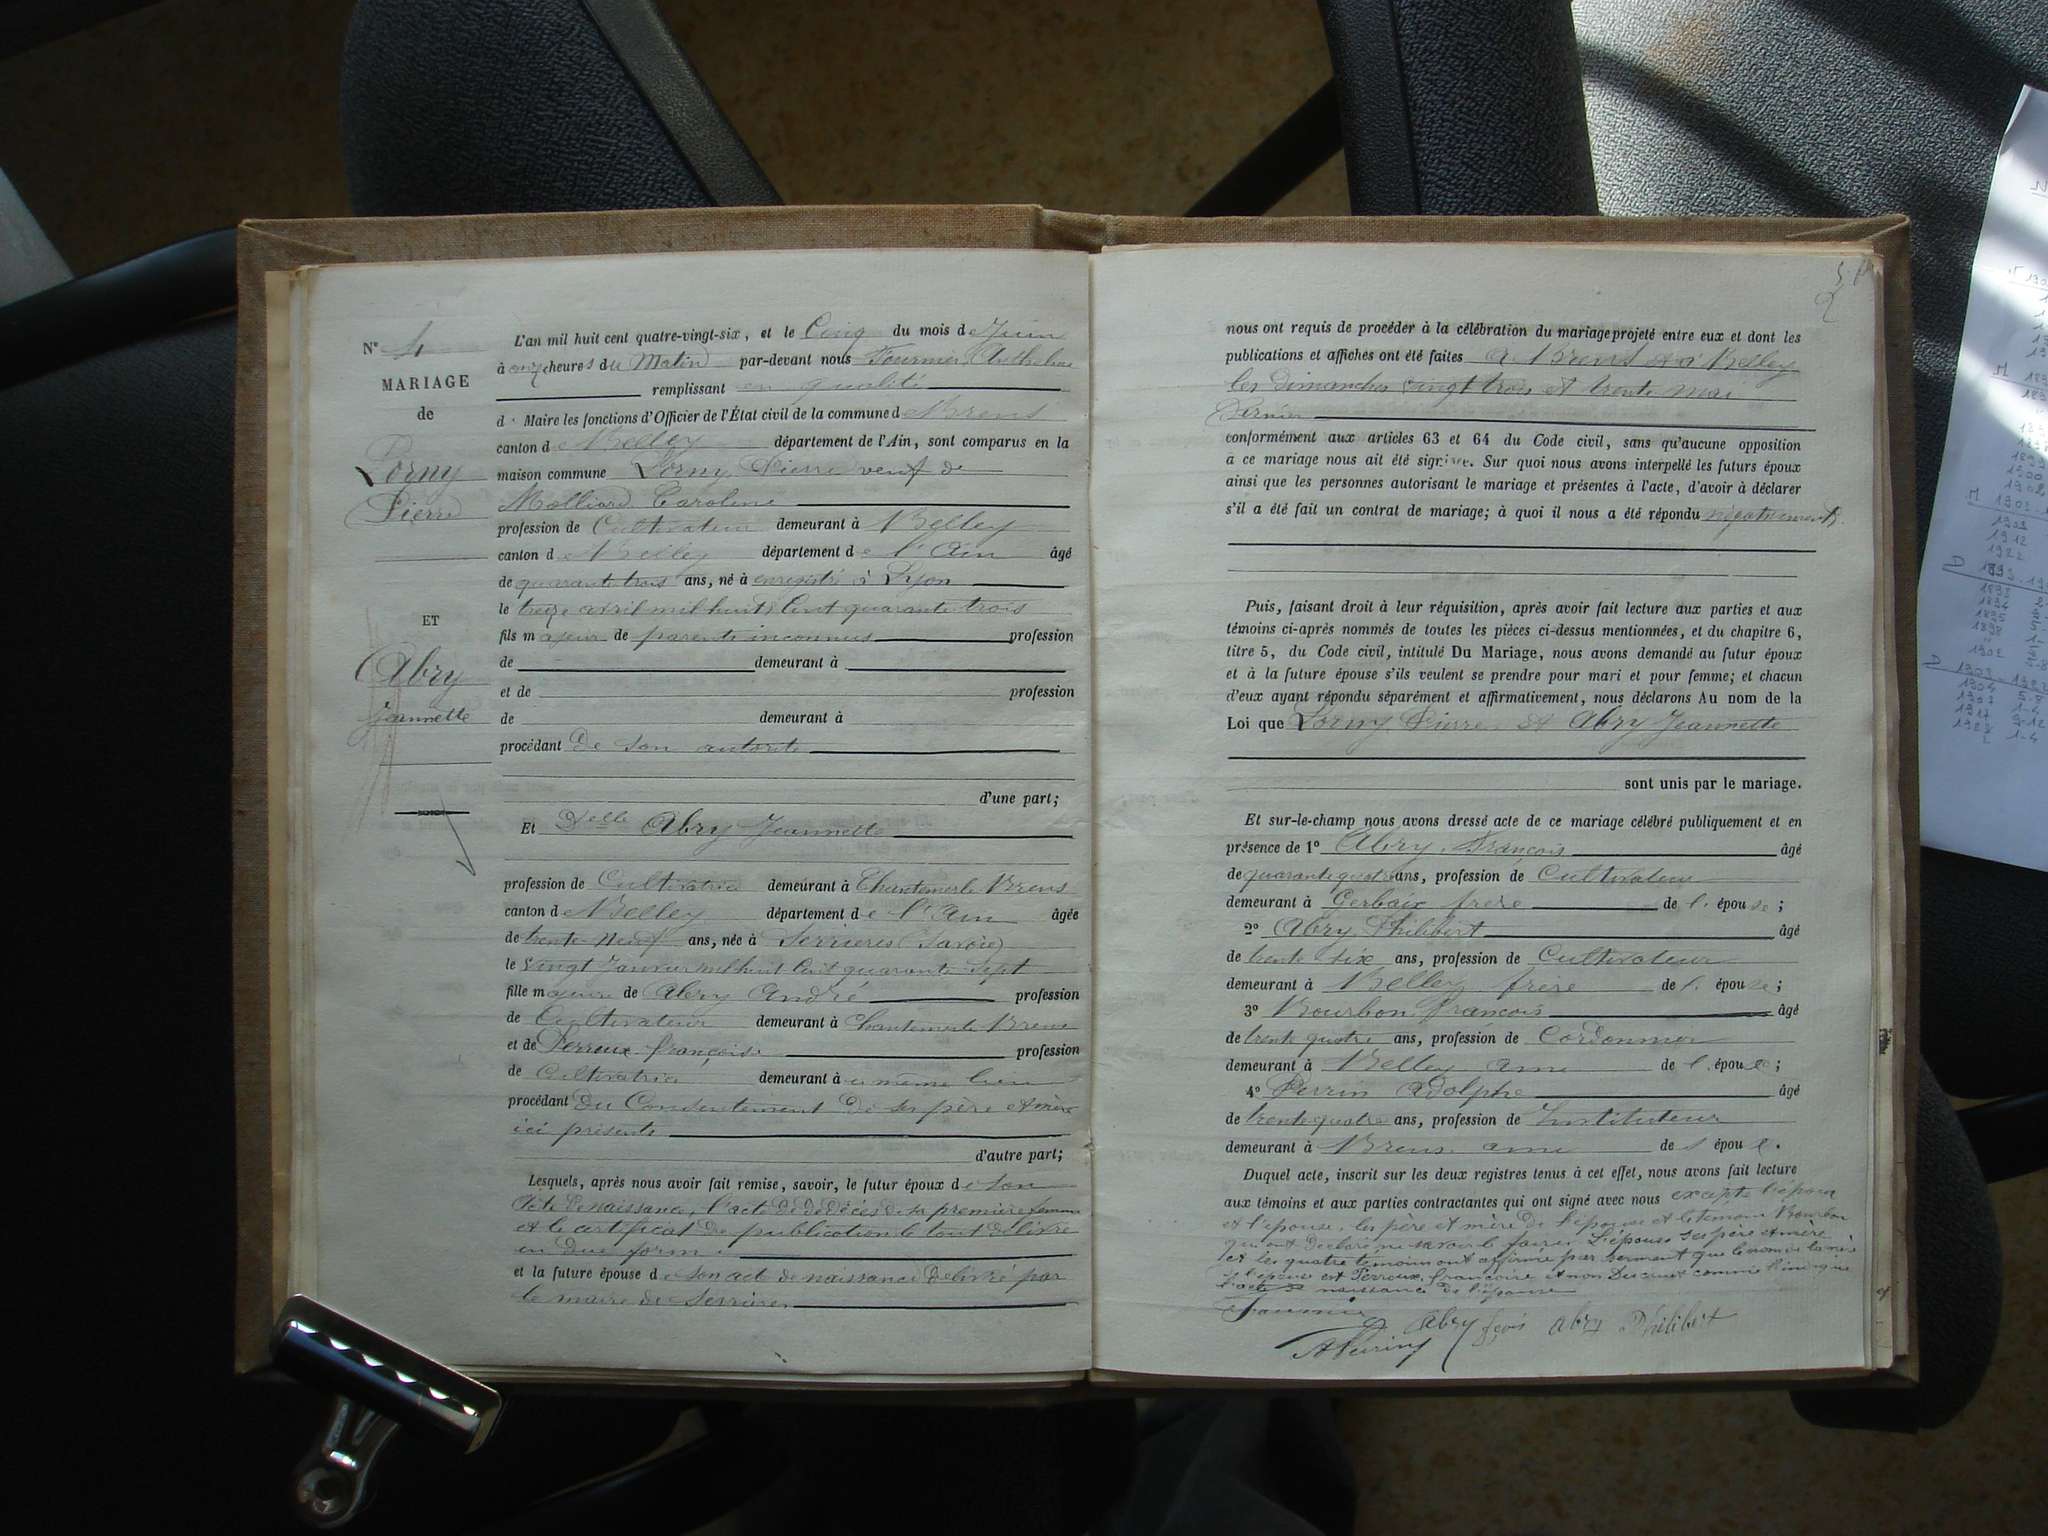 N° 4
MARIAGE
de
Lorny
Pierre
ET
Abry
Jeannette
L'an mil huit cent quatre-vingt-six, et le Cinq du mois de Juin
à onze heures du Matin par-devant nous Fournier Anthelme
remplissant en qualité
d Maire les fonctions d'Officier de l'État civil de la commune de Brens
canton de Belley département de l'Ain, sont comparus en la
maison commune Lorny Pierre veuf de
Molliard Caroline
profession de Cultivateur demeurant à Belley
canton de Belley département de l'Ain âgé
de quarante trois ans, né à enregistré à Lyon
le treize avril mil huit Cent quarante trois
fils majeur de parents inconnus profession
de demeurant à
et de profession
de demeurant à
procédant de son autorité
d'une part;
Et Delle Abry Jeannette
profession de Cultivatrice demeurant à Chantemerle Brens
canton de Belley département de l'Ain âgée
de trente-neuf ans, née à Serrières (Savoie)
le vingt Janvier mil huit Cent quarante Sept
fille majeure de Abry André profession
de Cultivateur demeurant à Chantemerle Brens
et de Perroux françoise profession
de Cultivatrice demeurant à u même lieu
procédant du Consentement de ses père et mère
ici présents
d'autre part;
Lesquels, après nous avoir fait remise, savoir, le futur époux de son
Acte de naissance, l'acte de de décès de sa première femme
et le certificat de publication le tout délivré
en due forme
et la future épouse de son acte de naissance délivré par
le maire de Serrières
5.
2
nous ont requis de procéder à la célébration du mariage projeté entre eux et dont les
publications et affiches ont été faites à Brens et à Belley
les dimanches vingt trois et trente mai
dernier
conformément aux articles 63 et 64 du Code civil, sans qu'aucune opposition
à ce mariage nous ait été signifiée. Sur quoi nous avons interpellé les futurs époux
ainsi que les personnes autorisant le mariage et présentes à l'acte, d'avoir à déclarer
s'il a été fait un contrat de mariage; à quoi il nous a été répondu négativement.
Puis, faisant droit à leur réquisition, après avoir fait lecture aux parties et aux
témoins ci-après nommés de toutes les pièces ci-dessus mentionnées, et du chapitre 6,
titre 5, du Code civil, intitulé Du Mariage, nous avons demandé au futur époux
et à la future épouse s'ils veulent se prendre pour mari et pour femme; et chacun
d'eux ayant répondu séparément et affirmativement, nous déclarons Au nom de la
Loi que Lorny Pierre et Abry Jeannette
sont unis par le mariage.
Et sur-le-champ nous avons dressé acte de ce mariage célébré publiquement et en
présence de 1° Abry François âgé
de quarante quatre ans, profession de Cultivateur
demeurant à Gerbaix frère de l'épouse;
2° Abry Philibert âgé
de trente six ans, profession de Cultivateur
demeurant à Belley frère de l'épouse;
3° Bourbon françois âgé
de trente quatre ans, profession de Cordonnier
demeurant à Belley ami de l'épouse;
4° Perrin Adolphe âgé
de trente quatre ans, profession de Instituteur
demeurant à Brens ami de l'épouse.
Duquel acte, inscrit sur les deux registres tenus à cet effet, nous avons fait lecture
aux témoins et aux parties contractantes qui ont signé avec nous excepté l'époux
et l'épouse, les père et mère de l'épouse et le témoin Bourbon
qui ont déclaré ne savoir le faire. L'épouse ses père et mère
et les quatre témoins ont affirmé par serment que le nom de la mère
de l'épouse est Perroux françoise et non comme l'indique
l'acte de naissance de l'épouse
Fournier
Abry fçois Abry Philibert
A Perrin
1904
1912
1922
1893
1894
1895
1898
1902
1903
1904